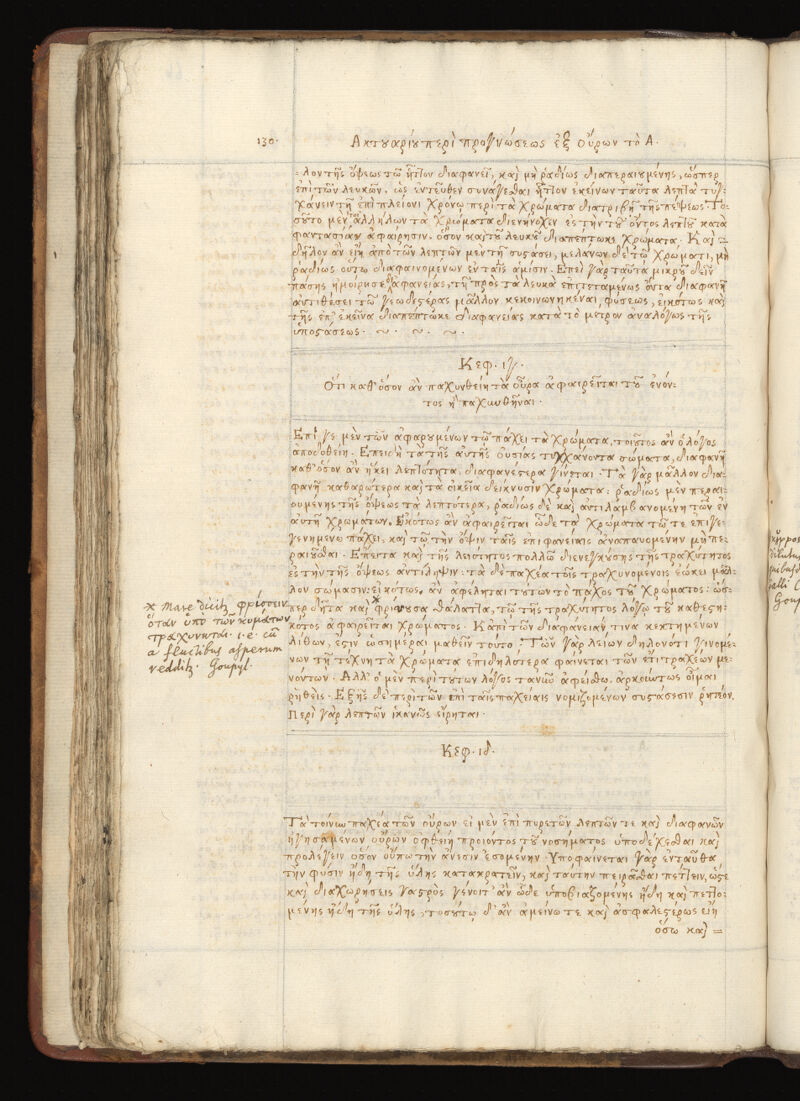 130. Ακτουαρίου περὶ προγνώσεως ἐξ Οὔρων τὸ Α.
λον τῆς ὄψεως τῷ ἧττον διαφανεῖ, καὶ μὴ ῥαδίως διαπεραιουμένης, ὥσπερ
ἐπὶ τῶν λευκῶν, ὡς ἐντεῦθεν συνάγεσθαι ἧττον ἐκείνων ταῦτα λεπτὰ τυγ-
χάνειν τῇ ἐπὶ πλείονι χρόνῳ περὶ τὰ χρώματα διατριβῇ τῆς πέψεως. Το-
σοῦτο μὲν ἀλλήλων τὰ χρώματα διενήνοχεν ἐς τὴν τοῦ ὄντος λεπτοῦ κατὰ
φαντασίαν ἀφαίρεσιν, ὅσον καὶ τοῦ λευκοῦ διαπέπτωκε χρώματος. Καὶ
δῆλον ἂν εἴη ἀπὸ τῶν λεπτῶν μὲν τῇ συστάσει, μελάνων δὲ τῷ χρώματι, μὴ
ῥαδίως οὕτω διαφαινομένων ἐν ταῖς ἀμίσιν. Ἐπεὶ γὰρ ταῦτα μικροῦ δεῖν
πάσης ἠμοίρησε διαφανείας, τῇ πρὸς τὰ λευκὰ ἐπιτεταμένως ὄντα διαφανῆ
ἀντιθέσει τῷ γεωδεστέρας μᾶλλον κεκοινωνηκέναι φύσεως, εἰκότως καὶ
τῆς ἐπ' ἐκεῖνα διαπέπτωκε διαφανείας κατὰ τὸ μέτρον ἀναλόγως τῆς
ὑποστάσεως.
Κεφ. ιγ.
Ὅτι καθ' ὅσον ἂν παχυνθείη τὰ οὖρα ἀφαιρεῖται τοῦ ἐνόν-
τος ἢ παχυνθῆναι.
Ἐπί γε μὲν τῶν ἀφαρουμένων τῷ πάχει τὰ χρώματα, τοιοῦτος ἂν ὁ λόγος
ἀποδοθείη. Ἐπειδὴ τὰ τῆς αὐτῆς οὐσίας τυγχάνοντα σώματα, διαφανῆ
καθ' ὅσον ἂν ἥκει λεπτότητα, διαφανέστερα γίνεται. Τὰ γὰρ μᾶλλον δια-
φανῆ καθαρώτερα καὶ τὰ οἰκεῖα δείκνυσιν χρώματα: ῥαδίως μὲν περαι-
ουμένης τῆς ὄψεως τὰ λεπτότερα, ῥαδίως δὲ καὶ ἀντιλαμβανομένη τῶν ἐν
αὐτῇ χρωμάτων. Εἰκότως ἂν ἀφαιρεῖται ὧδε τὰ χρώματα τῷ τε ἐπιγε-
γενημένῳ πάχει, καὶ τῷ τὴν ὄψιν ταῖς ἐπιφανείαις ἀναπαυομένην μὴ πε-
ραιοῦσθαι. Ἔπειτα καὶ τῆς λειότητος πολλῷ διενεγκούσης τῆς τραχύτητος
ἐς τὴν τῆς ὄψεως ἀντίληψιν: τὰ δὲ παχέα τοῖς τραχυνομένοις ἔοικει μᾶλ-
λον σώμασιν: εἰκότως, ἂν ἀφέληται τούτων τὸ πάχος τοῦ χρώματος: ὥσ-
περ δῆτα καὶ * φρίττουσα θάλαττα, τῷ τῆς τραχύτητος λόγῳ τοῦ καθεστη-
κότος ἀφαιρεῖται χρώματος. Κἀπὶ τῶν διαφάνειάν τινα κεκτημένων
λίθων, ἔστιν ὡσημέραι μαθεῖν τοῦτο. Τῶν γὰρ λείων δηλονότι γινομέ-
νων τῇ τέχνῃ τὰ χρώματα ἐπιδηλότερα φαίνεται τῶν ἔτι τραχέων με-
νόντων. Ἀλλ' ὁ μὲν περὶ τούτων λόγος τανῦν ἀφείσθω, ἀρκούντως οἶμαι
ῥηθείς. Ἑξῆς δὲ περὶ τῶν ἐπὶ ταῖς παχείαις νομιζομένων συστάσεσιν ῥητέον.
Περὶ γὰρ λεπτῶν ἱκανῶς εἴρηται.
* Mare dicitur φρίσσειν
ὅταν ὑπὸ τῶν κυμάτων
τραχύνηται. i. e. cũ
a fluctibus asperum
redditur. Goupyl.
Κεφ. ιδ.
Τὰ τοίνυν παχέα τῶν οὔρων εἰ μὲν ἐπὶ πυρετῶν λεπτῶν τε καὶ διαφανῶν
ἡγησαμένων οὔρων ὀφθείη προϊόντος τοῦ νοσήματος ὑποδέχεσθαι καὶ
προλέγειν ὅσον οὔπω τὴν ἄνεσιν ἐσομένην. Ὑποφαίνεται γὰρ ἐνταῦθα
τὴν φύσιν ἤδη τῆς ὕλης κατακρατεῖν, καὶ ταύτην πειρᾶσθαι πέττειν, ὥστε
καὶ διαχωρήσεις γαστρὸς γένοιτ' ἂν ὧδε ὑποβιαζομένης ἤδη καὶ πεττο-
μένης ἤδη τῆς ὕλης, τοσούτῳ δ' ἂν ἀμείνω τε καὶ ἀσφαλεστέρως εἴη
ὅσῳ καὶ